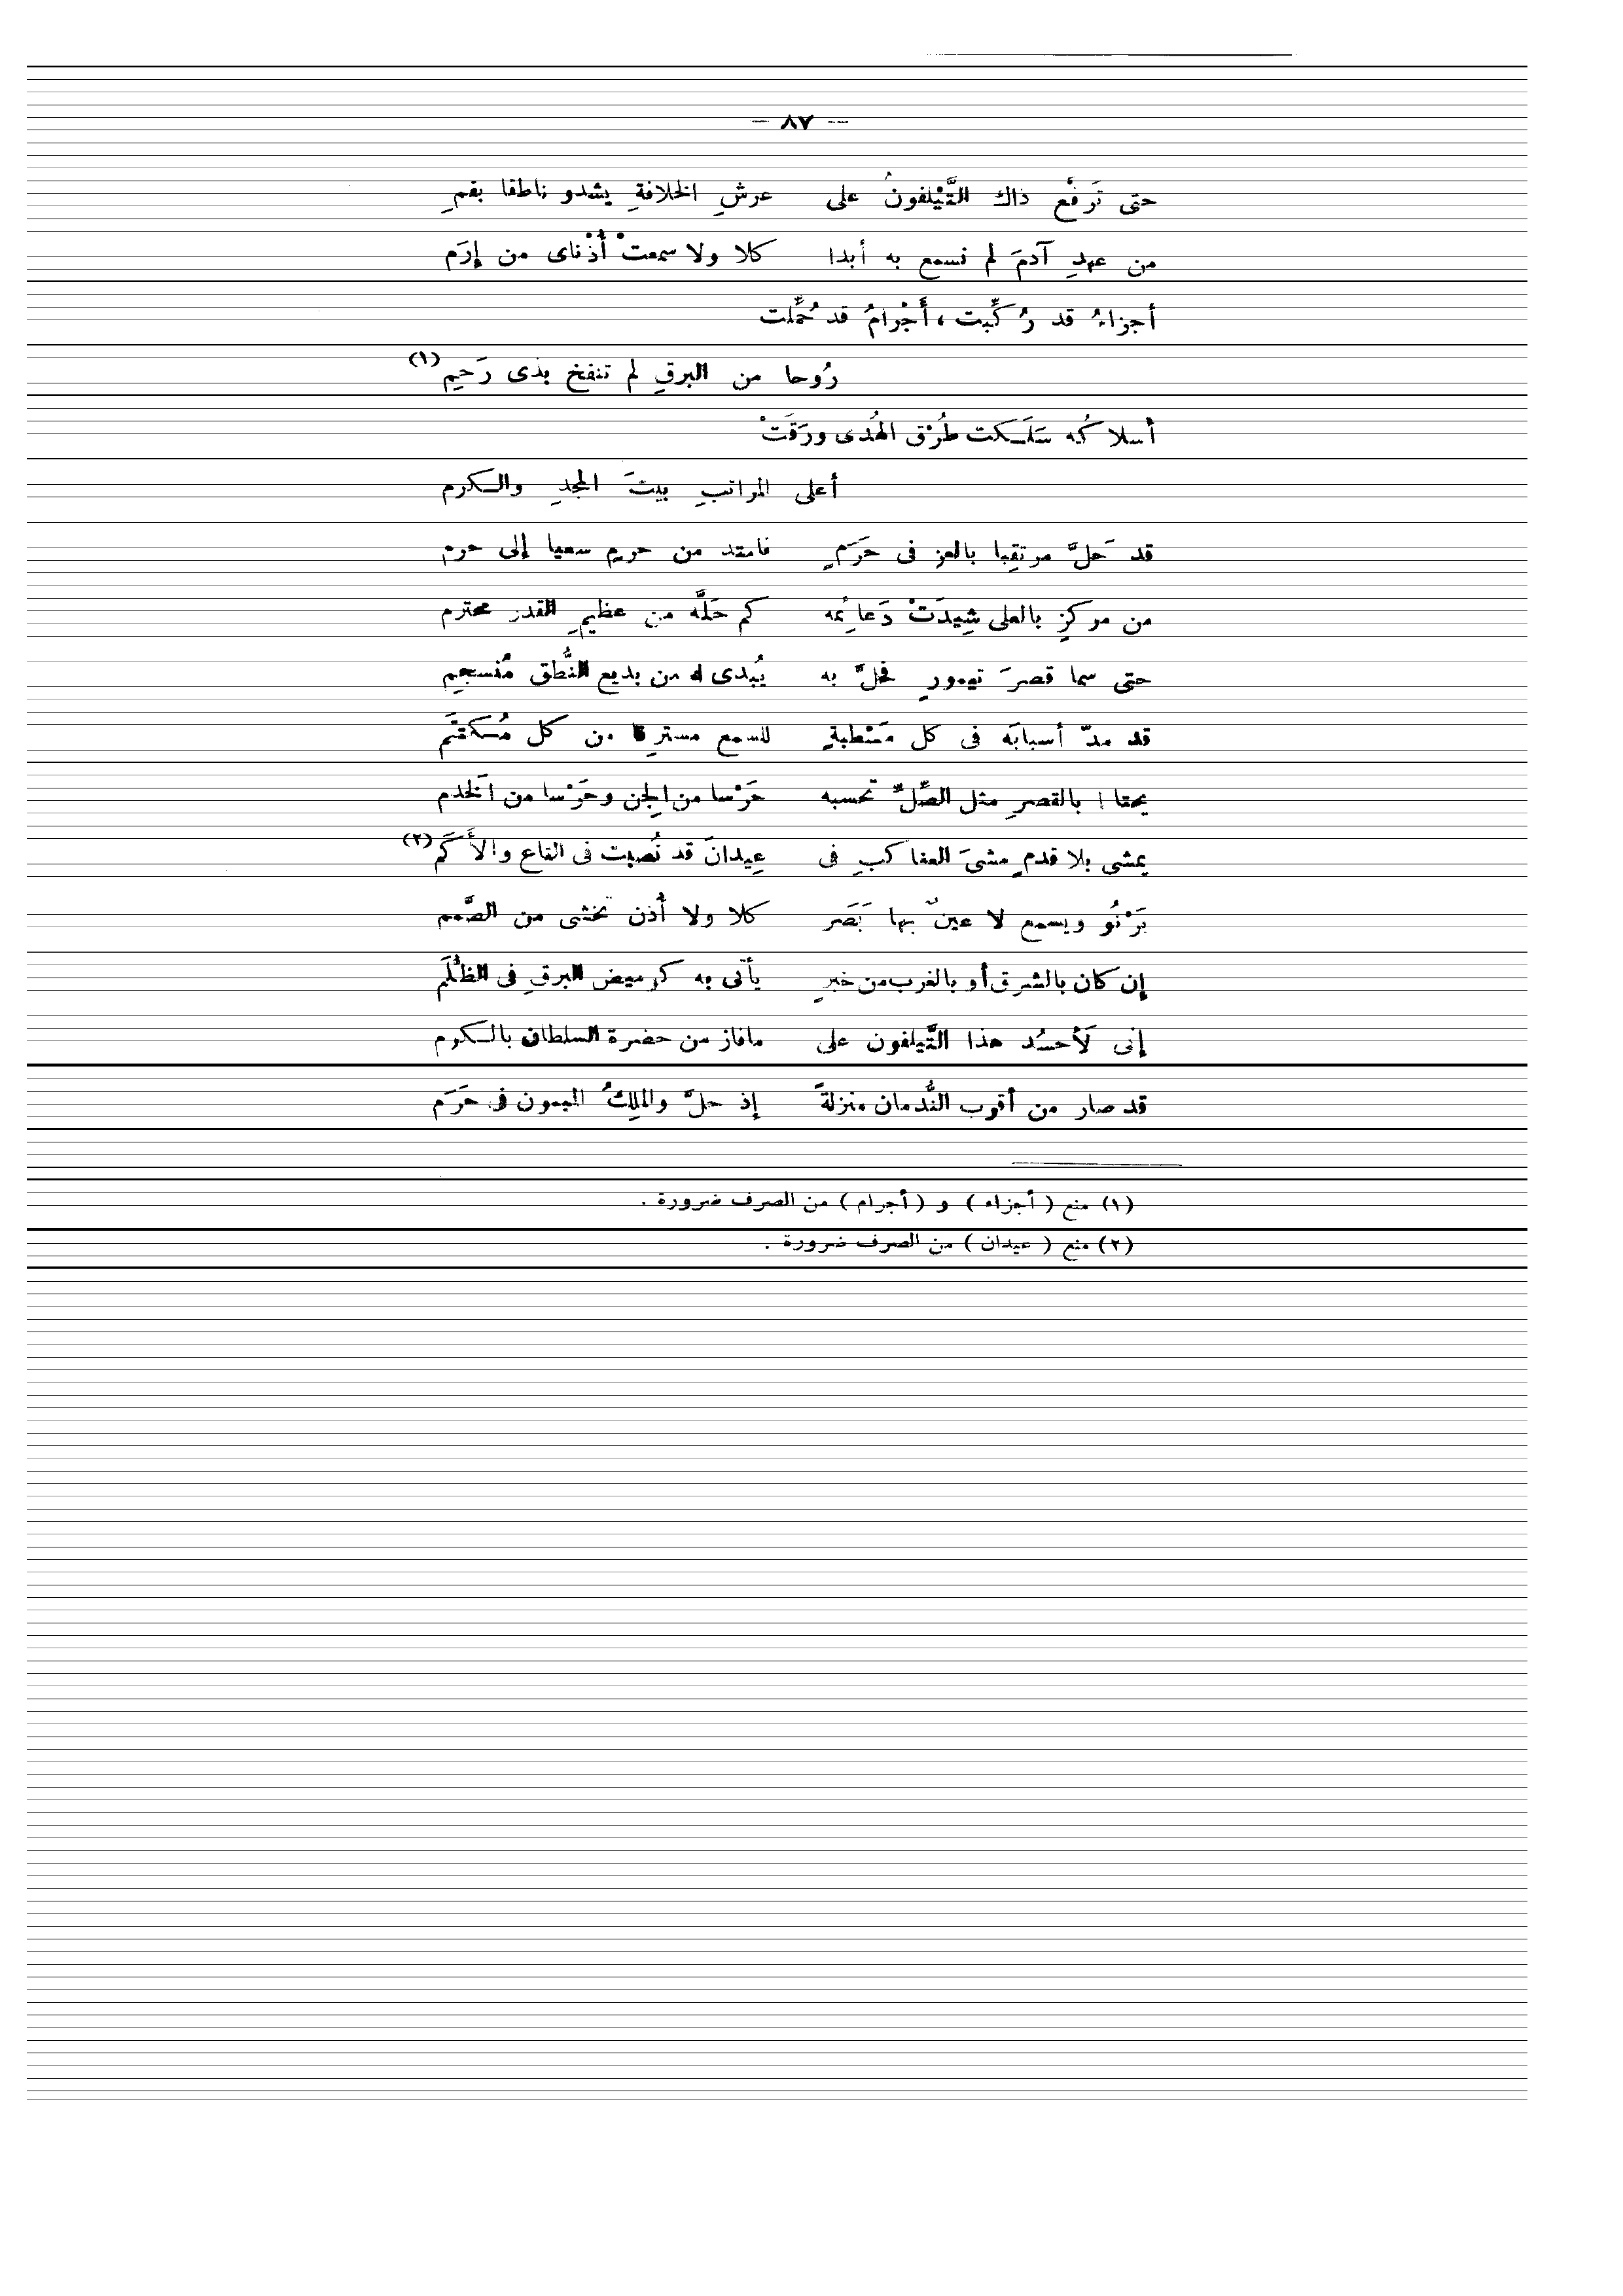 — ٨٧ —
حتى تَرفَّع ذاك التَّيْلفونُ على عرشِ الخلافةِ يشدو ناطقا بفمِ
من عهدِ آدمَ لم نسمع به أبدا كلا ولا سمعتْ أُذْناى من إرَم
أجزاءُ قد رُكِّبت ، أَجْرامُ قد حُمِّلت
رُوحا من البرقِ لم تنفخ بذى رَحِمِ (١)
أسلاكُه سَلَكت طُرْق الهُدى ورَقَتْ
أعلى المراتبِ بيتَ المجدِ والكرم
قد حَلَّ مرتقِبا بالعز فى حَرَمٍ فامتد من حرمٍ سعيا إلى حرم
من مركزٍ بالعلى شِيدَتْ دَعائمُه كم حَلَّه من عظيمِ القدر محترم
حتى سما قصرَ تيمورٍ فحلَّ به يُبدى له من بديع النُّطق مُنسجمِ
قد مدّ أسبابَه فى كل مَسْطبةٍ للسمع مسترِقا من كل مُكتَتَم
يحتا بالقصرِ مثل الصِّلِّ تحسبه حَرْسا من الجِن وحَرْسا من الخَدم
يمشى بلا قدمٍ مشىَ العناكبِ فى عِيدانَ قد نُصبت فى القاع والأَكَم (٢)
يَرْنُو ويسمع لا عينٌ بها بَصَر كلا ولا أُذن تخشى من الصَّمم
إن كان بالشرق أو بالغرب من خبرٍ يأتى به كوميض البرقِ فى الظُّلَم
إنى لَأحسُد هذا التَّيلفون على مافاز من حضرة السلطان بالكرم
قد صار من أقرب النُّدمان منزلةً إذ حلَّ والملِكُ الميمون فى حَرَم
(١) منع ( أجزاء ) و ( أجرام ) من الصرف ضرورة .
(٢) منع ( عيدان ) من الصرف ضرورة .